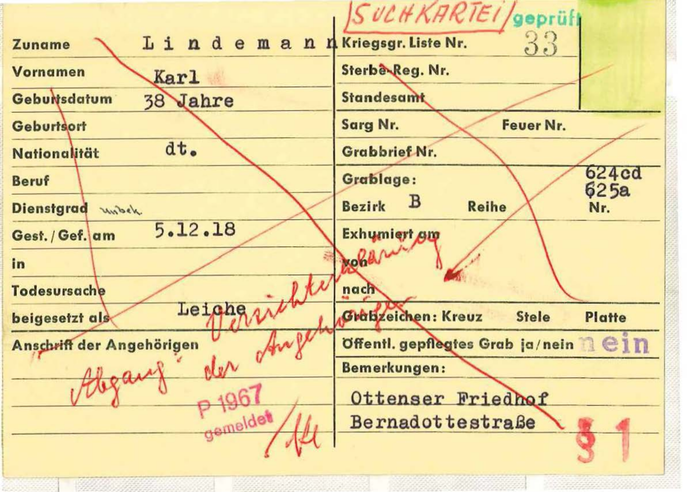 SUCHKARTEI geprüft
Zuname Lindemann
Kriegsgr. Liste Nr. 33
Vornamen Karl
Sterbe-Reg. Nr.
Geburtsdatum 38 Jahre
Standesamt
Geburtsort
Sarg Nr. Feuer Nr.
Nationalität dt.
Grabbrief Nr.
Beruf
Grablage: 624cd
625a
Dienstgrad unbek
Bezirk B Reihe Nr.
Gest./Gef. am 5.12.18
Exhumiert am
in
von
Todesursache
nach
beigesetzt als Leiche
Grabzeichen: Kreuz Stele Platte
Anschrift der Angehörigen
Öffentl. gepflegtes Grab ja/nein nein
Abgang: Verzichterklärung
der Angehörigen
P 1967
gemeldet
Bemerkungen:
Ottenser Friedhof
Bernadottestraße
§ 1